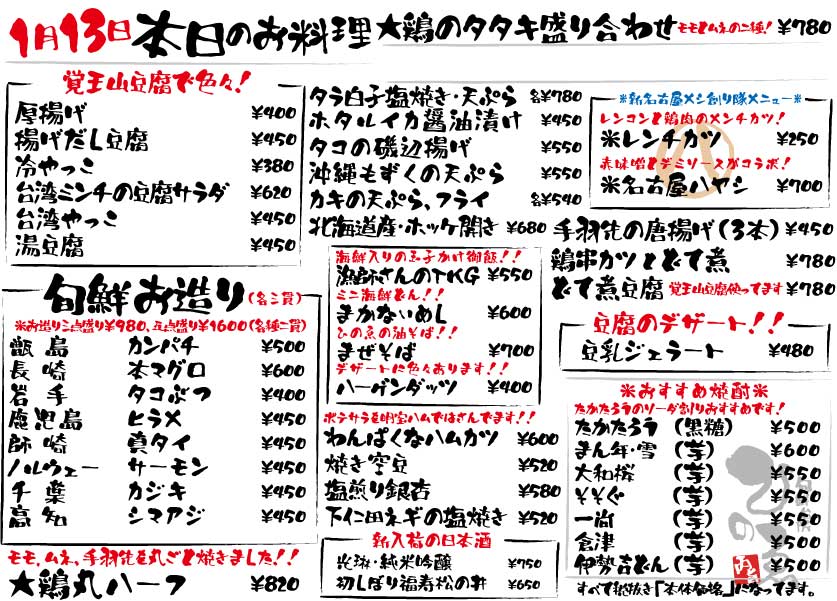 1月13日本日のお料理
★鶏のタタキ盛り合わせ モモとムネの二種! ¥780
覚王山豆腐で色々!
厚揚げ ¥400
揚げだし豆腐 ¥450
冷やっこ ¥380
台湾ミンチの豆腐サラダ ¥620
台湾やっこ ¥450
湯豆腐 ¥450
旬鮮お造り(各三貫)
※お造り三点盛り¥980、五点盛り¥1600(各種二貫)
甑島 カンパチ ¥500
長崎 本マグロ ¥600
岩手 タコぶつ ¥400
鹿児島 ヒラメ ¥450
師崎 真タイ ¥450
ノルウェー サーモン ¥450
千葉 カジキ ¥450
高知 シマアジ ¥450
モモ、ムネ、手羽先を丸ごと焼きました!!
★鶏丸ハーフ ¥820
タラ白子塩焼き・天ぷら 各¥780
ホタルイカ醤油漬け ¥450
タコの磯辺揚げ ¥550
沖縄もずくの天ぷら ¥550
カキの天ぷら、フライ 各¥540
北海道産・ホッケ開き ¥680
海鮮入りの玉子かけ御飯!!
漁師さんのTKG ¥550
ミニ海鮮どん!!
まかないめし ¥600
ひの魚の油そば!!
まぜそば ¥700
デザートに色々あります!!
ハーゲンダッツ ¥400
ポテサラを明宝ハムではさんでます!!
わんぱくなハムカツ ¥600
焼き空豆 ¥520
塩煎り銀杏 ¥580
下仁田ネギの塩焼き ¥520
新入荷の日本酒
純米吟醸 ¥750
初しぼり福寿松の井 ¥650
※新名古屋メシ創り隊メニュー※
レンコンと鶏肉のメンチカツ!
※レンチカツ ¥250
赤味噌とデミソースがコラボ!
※名古屋ハヤシ ¥700
手羽先の唐揚げ(3本) ¥450
鶏串カツとどて煮 ¥780
どて煮豆腐 覚王山豆腐使ってます ¥780
豆腐のデザート!!
豆乳ジェラート ¥480
※おすすめ焼酎※
たかたろうのソーダ割りおすすめです!
たかたろう (黒糖) ¥500
まん年・雪 (芋) ¥500
大和桜 (芋) ¥550
そそぐ (芋) ¥550
一尚 (芋) ¥550
倉津 (芋) ¥500
伊勢吉どん (芋) ¥500
すべて税抜き「本体価格」になってます。